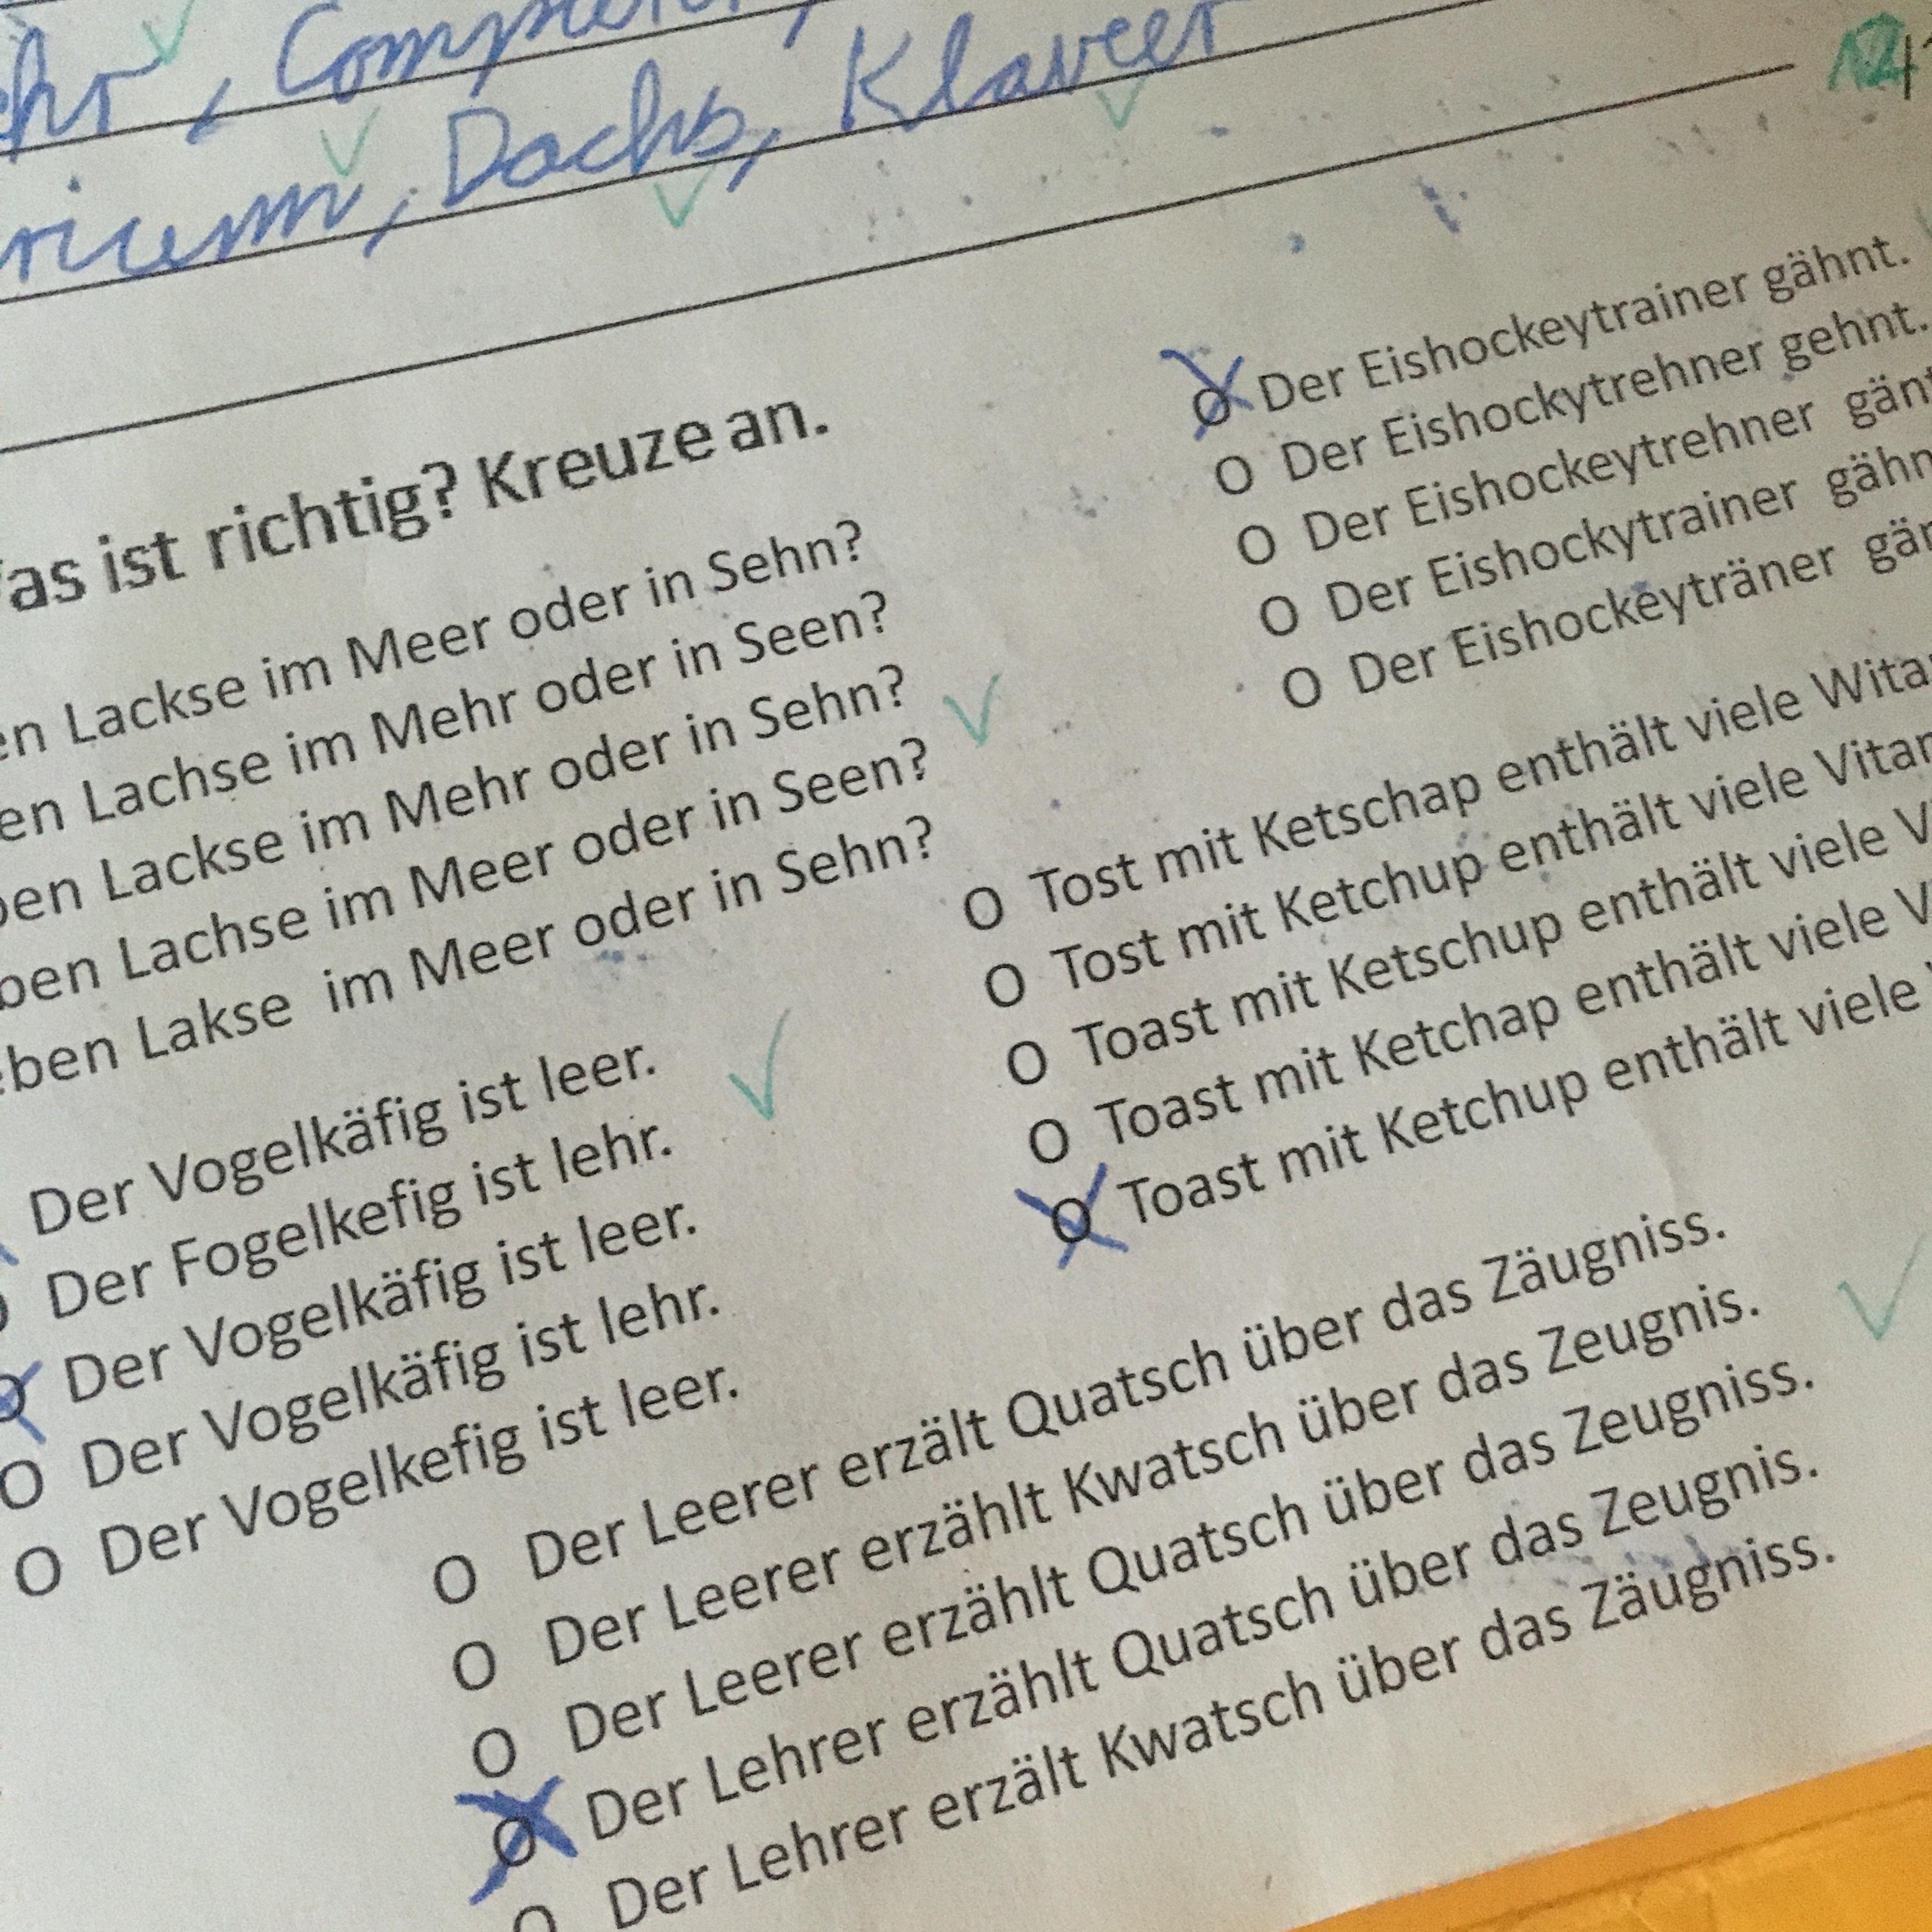 Computer,
Dachs, Klavier
12
as ist richtig? Kreuze an.
en Lackse im Meer oder in Sehn?
en Lachse im Mehr oder in Seen?
ben Lackse im Mehr oder in Sehn?
ben Lachse im Meer oder in Seen?
eben Lakse im Meer oder in Sehn?
O Der Eishockeytrainer gähnt.
O Der Eishockytrehner gehnt.
O Der Eishockeytrehner gänt
O Der Eishockytrainer gähn
O Der Eishockeyträner gän
Der Vogelkäfig ist leer.
O Der Fogelkefig ist lehr.
O Der Vogelkäfig ist leer.
O Der Vogelkäfig ist lehr.
O Der Vogelkefig ist leer.
O Tost mit Ketschap enthält viele Wita
O Tost mit Ketchup enthält viele Vitam
O Toast mit Ketschup enthält viele V
O Toast mit Ketchap enthält viele V
O Toast mit Ketchup enthält viele
O Der Leerer erzält Quatsch über das Zäugniss.
O Der Leerer erzählt Kwatsch über das Zeugnis.
O Der Leerer erzählt Quatsch über das Zeugniss.
O Der Lehrer erzählt Quatsch über das Zeugnis.
O Der Lehrer erzält Kwatsch über das Zäugniss.